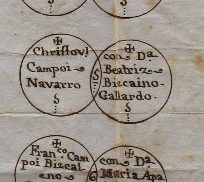 Christovl
Campoi
Navarro
con Da
Beatriz
Bizcaino
Gallardo.
Fran.co Cam
poi Bizcai
no
con Da
Maria Apa